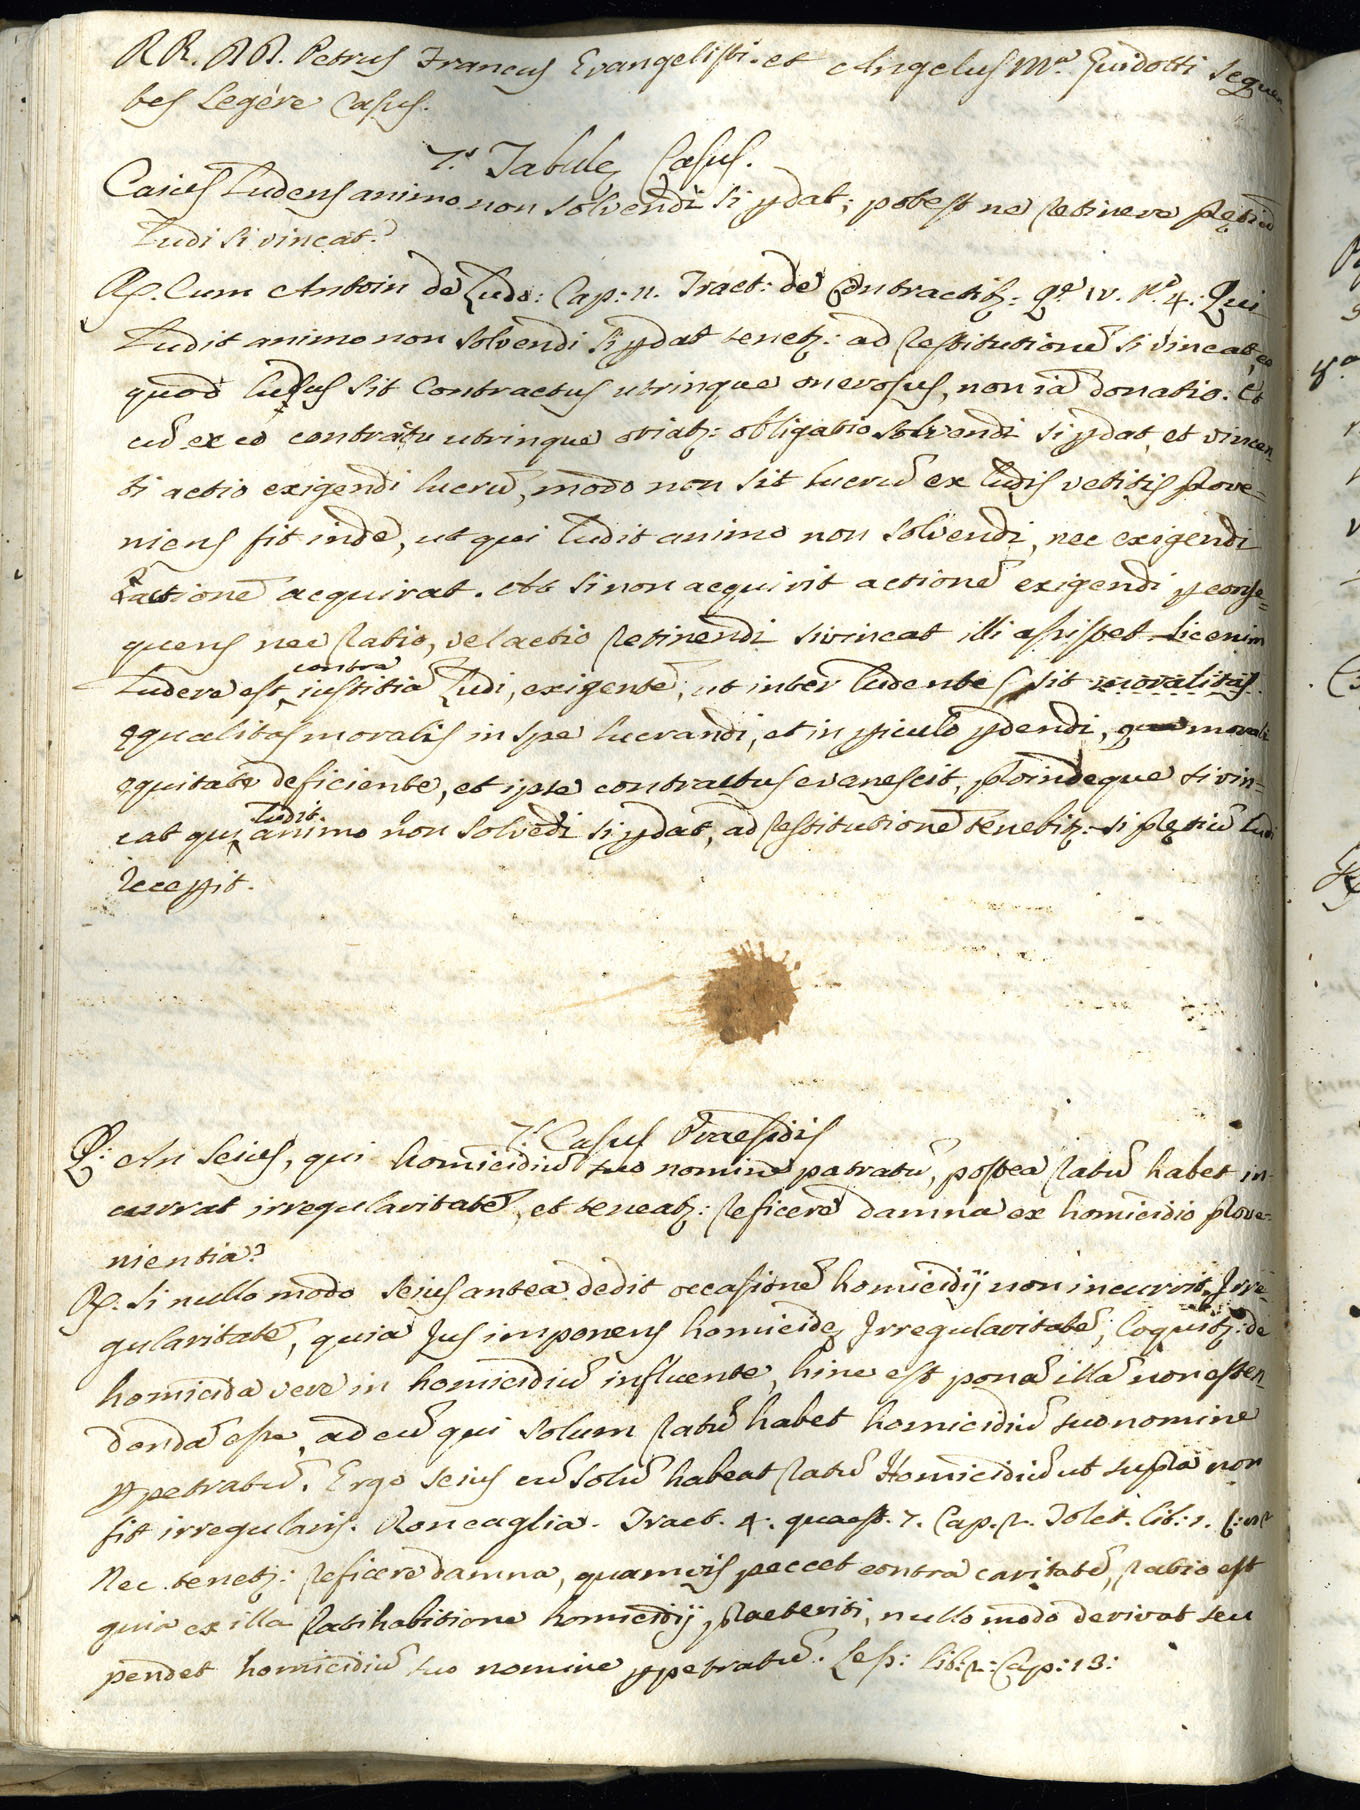 RR. DD. Petrus Francus Evangelisti. et Angelus Mª. Guidotti sequen
tes legére Casus.
7.s Tabulę Casus.
Caius ludens animo non solvendi si pdat; potest ne retinere pretiū
ludi si vincat?
R. Cum Antoin de Ludo: Cap: 11. Tract: de Contractib: Qº. IV. Rº. 4. Qui
ludit animo non solvendi si pdat tenet: ad restitutionē si vincat, eo
quod lusus sit Contractus utrinque onerosus, non iā donatio. Et
cū ex eo contratu utrinque oriat: obligatio solvendi si pdat, et vincen
ti actio exigendi lucrū, modo non sit lucrū ex ludis vetitis prove=
niens fit inde, ut qui ludit animo non solvendi, nec exigendi
actionē acquirat. At si non acquirit actionē exigendi p conse=
quens nec ratio, vel actio retinendi si vincat illi assistet sic enim
ludere est contra iustitiā ludi, exigentē, ut inter ludentes sit moralitas
ęqualitas moralis in spe lucrandi, et in piculo pdendi, qua morali
ęquitate deficiente, et ipse contractus evanescit, proindeque si vin=
cat qui ludit animo non solvēdi si pdat, ad restitutionē tenebit: si pretiū ludi
recepit.
7.s Casus Praesidis
Q: An Seius, qui homicidiū suo nomine patratū, postea ratū habet in=
currat irregularitatē, et teneat: reficere damna ex homicidio prove=
nientia?
R. Si nullo modo Seius antea dedit occasionē homicidij non incurrit Irre=
gularitatē, quia Jus imponens homicidę Irregularitatē, loquit: de
homicida vere in homicidiū influente, hinc est ponā illā non esten
dendā esse, ad eū qui solum ratū habet homicidiū suo nomine
ppetratū. Ergo Seius cū solū habeat ratū Homicidiū ut supra non
fit irregularis. Roncaglia. Tract. 4. quaest. 7. Cap. 2. Tolet. lib: 1.
Nec tenet: reficere damna, quamvis peccet contra caritatē, ratio est
quia ex illa ratihabitione homicidij praeteriti, nullo modo derivat seu
pendet homicidiū suo nomine ppetratū. Less: lib: 2: Cap: 13: